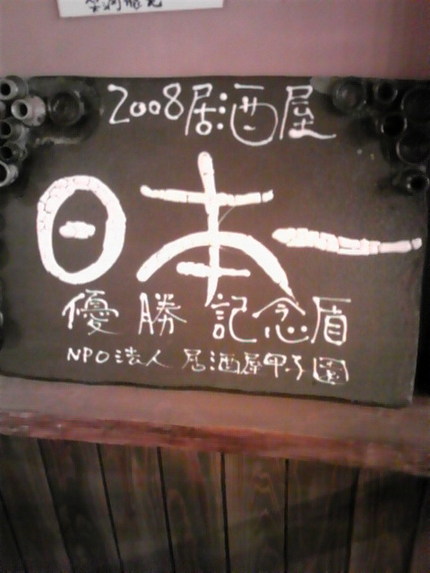 2008居酒屋
日本一
優勝 記念盾
NPO法人 居酒屋甲子園